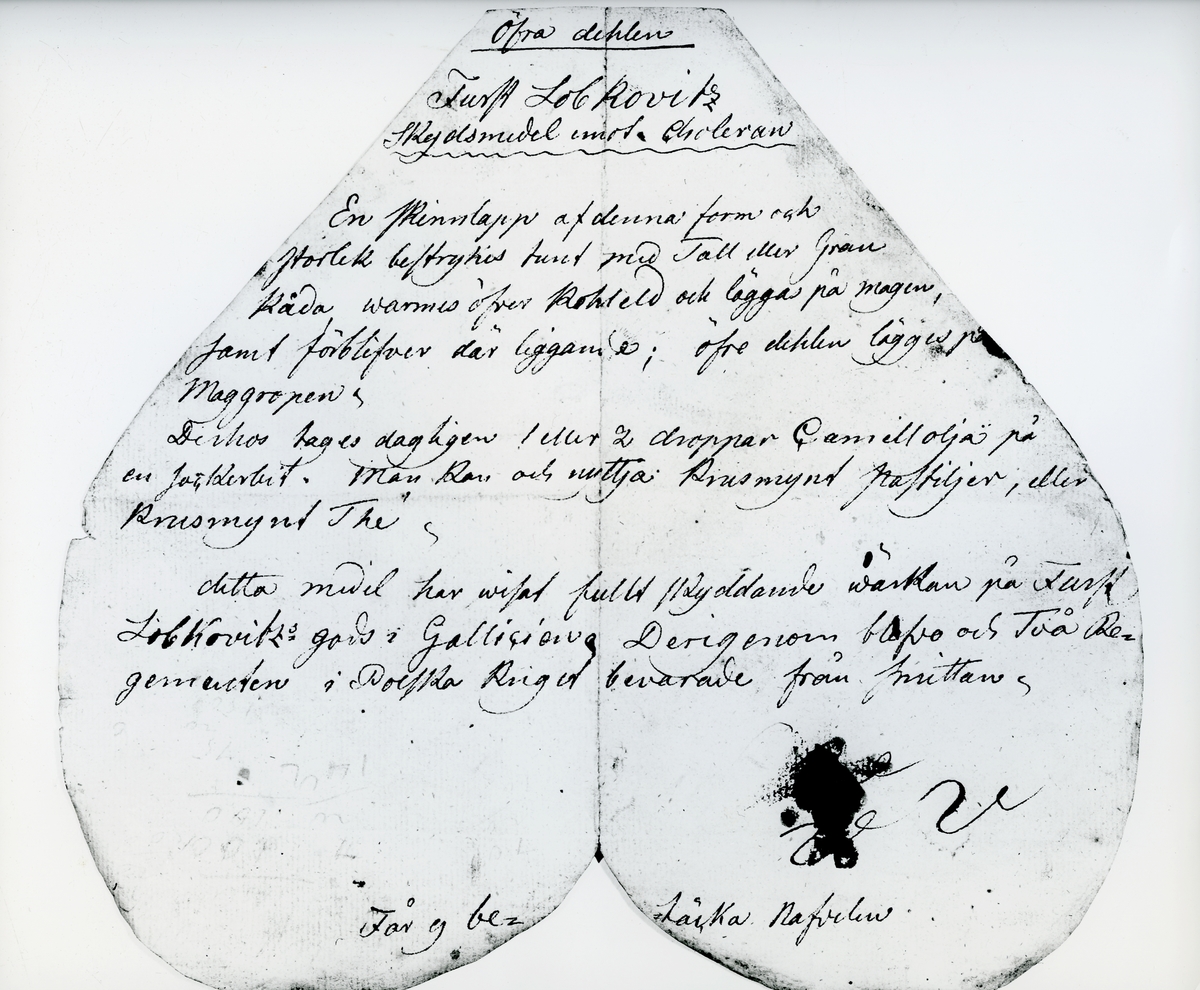 Öfra dehlen
Furst Lobkovitz
Skydsmedel emot Choleran
En skinnlapp af denna form och
storlek bestrykes tunt med Tall eller Gran
Kåda, warmes öfver Kohleld och läggas på magen,
samt förblifver där liggande; öfre dehlen lägges på
Maggropen.
Derhos tages dagligen 1 eller 2 droppar Camillolja på
en sockerbit. Man kan och nyttja Krusmynt Pastiljer, eller
Krusmynt The
detta medel har wisat fullt skyddande wärkan på Furst
Lobkovitz's gods i Gallicien. Derigenom blefvo och Två Re=
gementen i Polska Kriget bevarade från smittan.
Får ej be=
=täcka Nafvelen